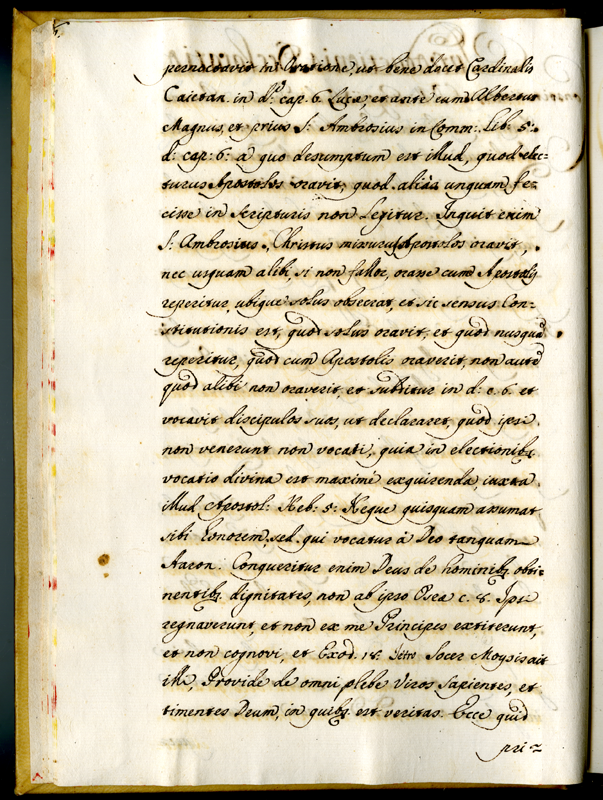 pernoctavit in Oratione, ut bene docet Cardinalis
Caietan. in d.º cap. 6. Lucæ, et ante eum Albertus
Magnus, et prius S: Ambrosius in Comm: Lib: 5:
d: cap: 6: à quo desumptum est illud, quod elec-
turus Apostolos oravit, quod aliàs unquam fe-
cisse in scripturis non legitur. Inquit enim
S: Ambrositus, Christus missurus Apostolos oravit,
nec usquam alibi, si non fallor, orasse cum Apostolis
reperitur, ubique solus obsecrat, et sic sensus Con-
stitutionis est, quod solus oravit, et quod nusquã
reperitur, quod cum Apostolis oraverit, non autẽ
quod alibi non oraverit, et subditur in d: c. 6. et
vocavit discipulos suos, ut declararet, quod ipsi
non venerunt non vocati, quia in electionib;
vocatio divina est maximè exquirenda, iuxta
illud Apostol: Heb: 5: Neque quisquam assumat
sibi honorem, sed qui vocatur à Deo tanquam
Aaron: Conqueritur enim Deus de hominib; obti-
nentib; dignitates, non ab ipso Osea c. 8. Ipsi
regnaverunt, et non ex me Principes extiterunt,
et non cognovi, et Exod. 18: Jetro Socer Moysis ait
illi, Provide de omni plebe Viros sapientes, et
timentes Deum, in quib; est veritas. Ecce quid
pri-